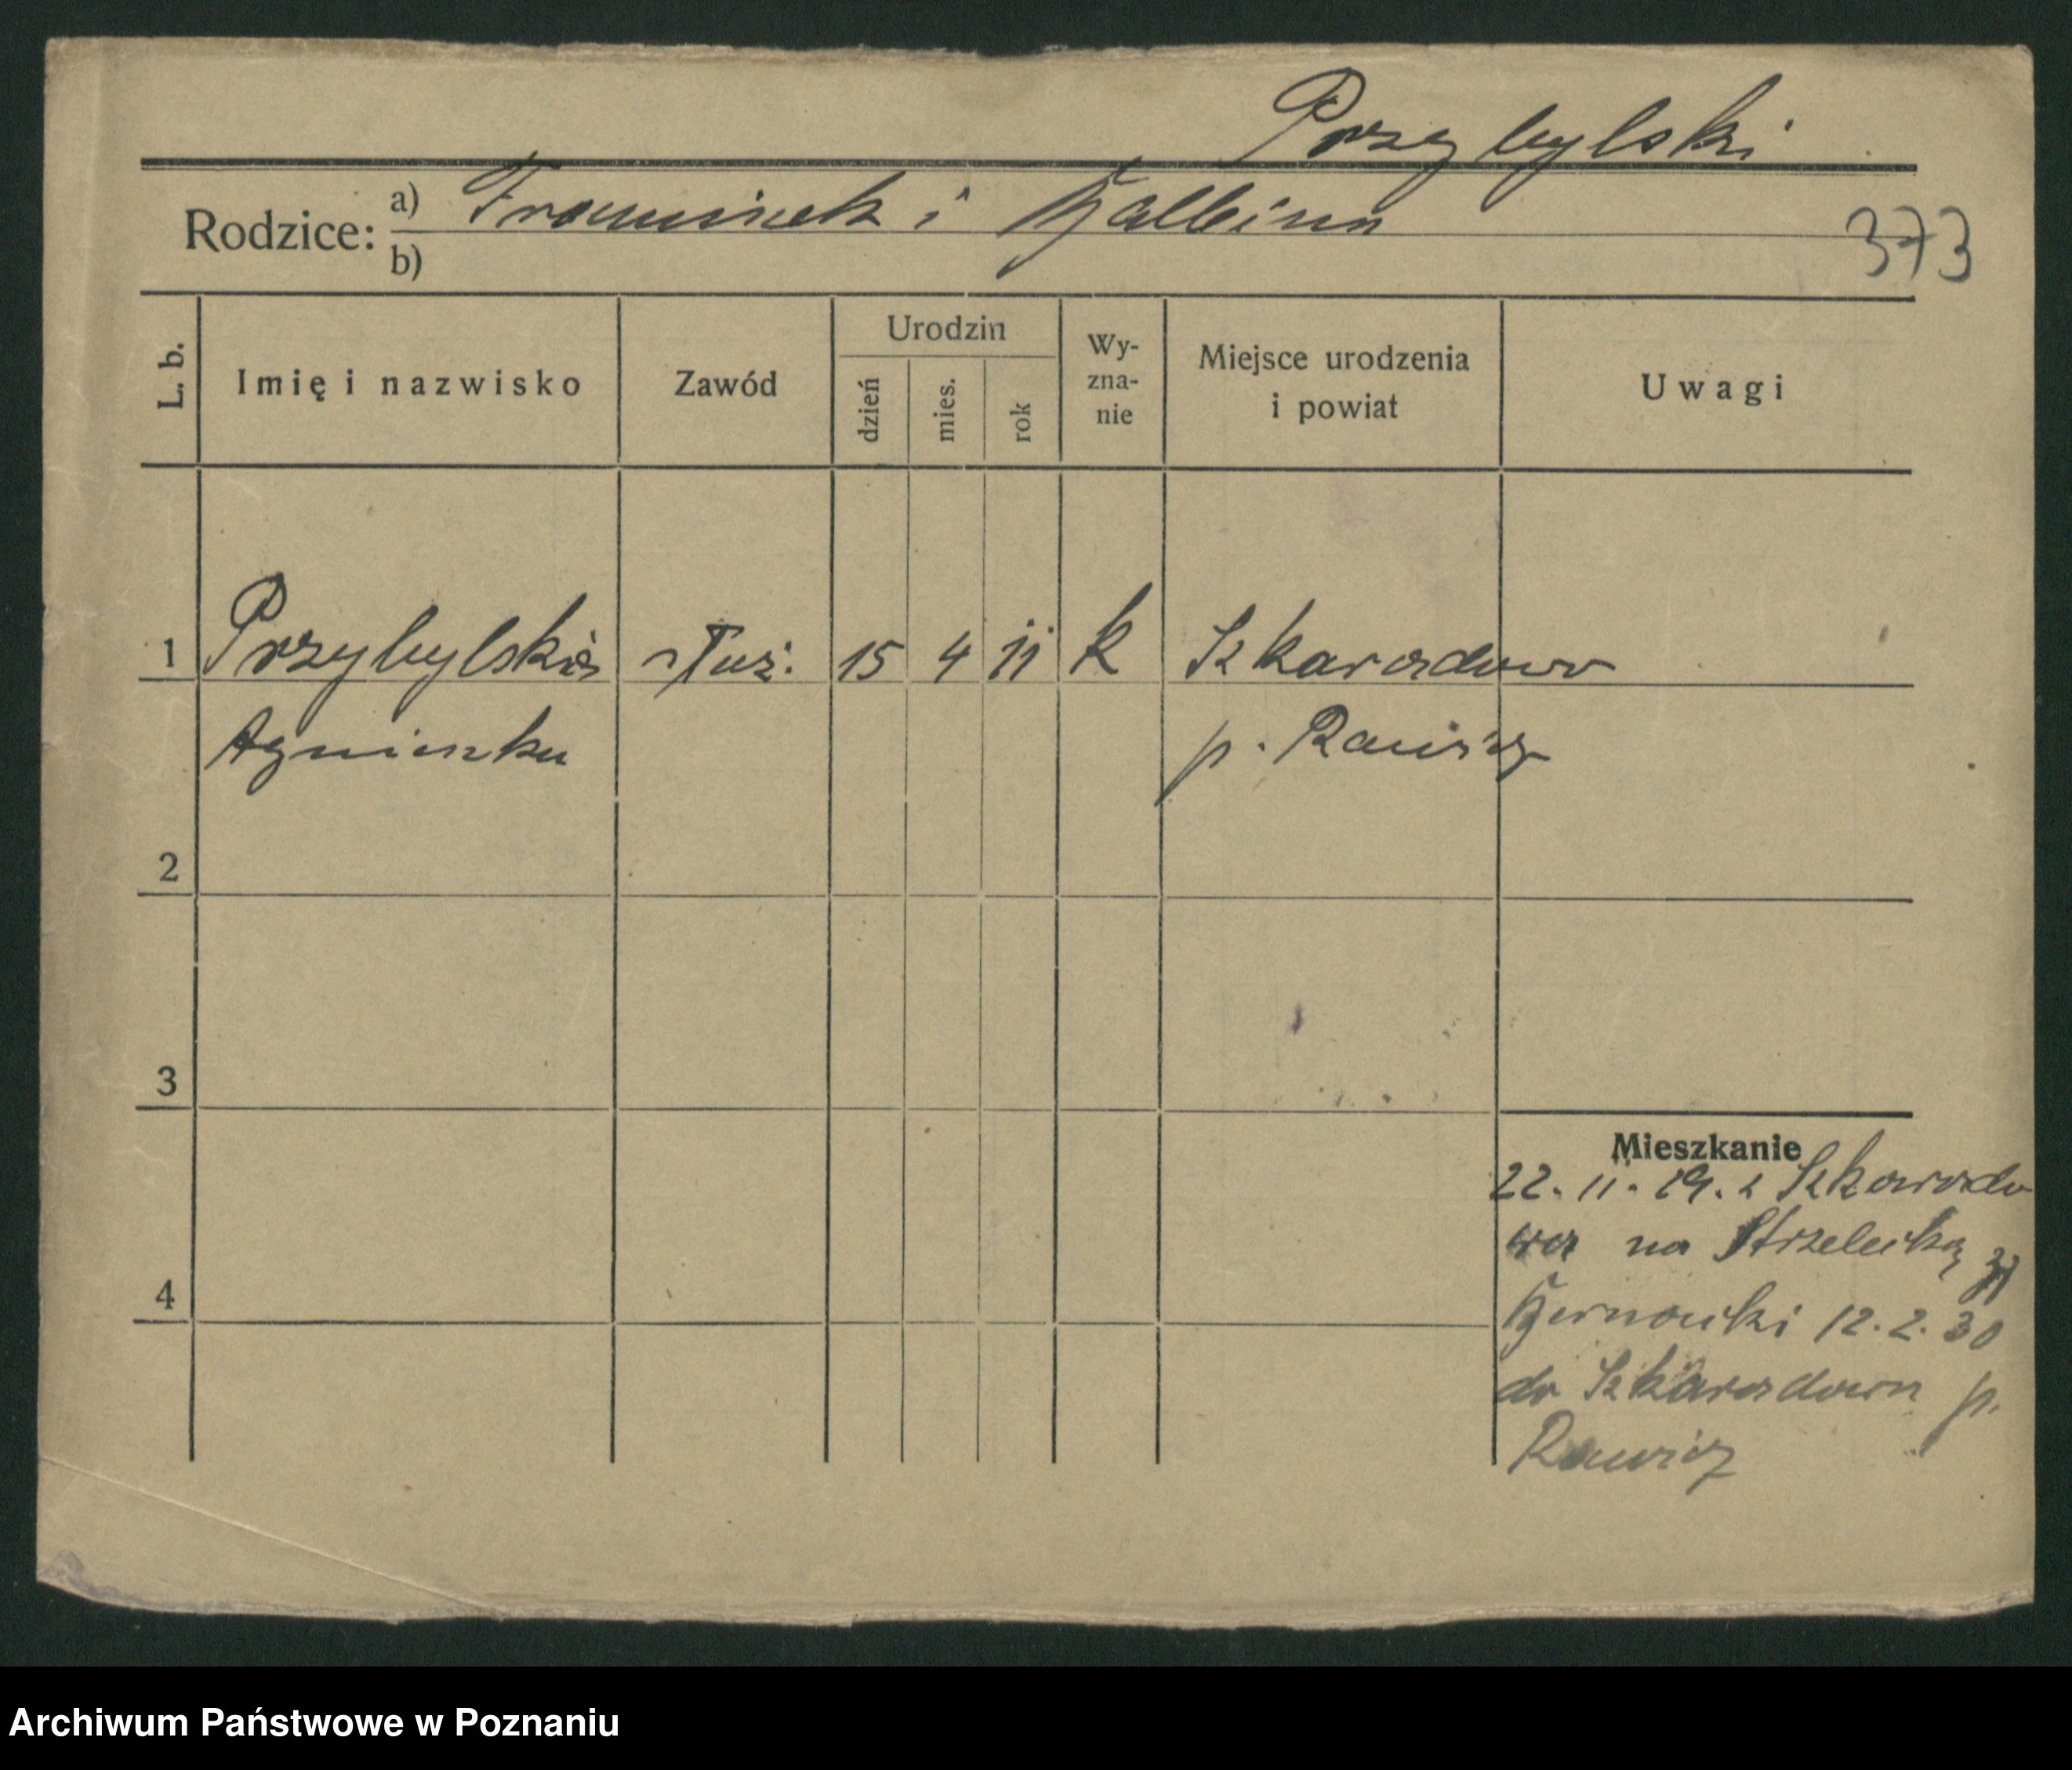 Przybylski
Rodzice: a) Franciszek i Balbina
b)
373
L. b.
Imię i nazwisko
Zawód
Urodzin
dzień
mies.
rok
Wy-
zna-
nie
Miejsce urodzenia
i powiat
Uwagi
1 Przybylska służ. 15 4 11 k Szkaradowo
Agnieszka p. Rawicz
2
3
4
Mieszkanie
22.11.29. z Szkarado
wa na Strzelecką
12.2.30
do Szkaradowa p.
Rawicz
Archiwum Państwowe w Poznaniu